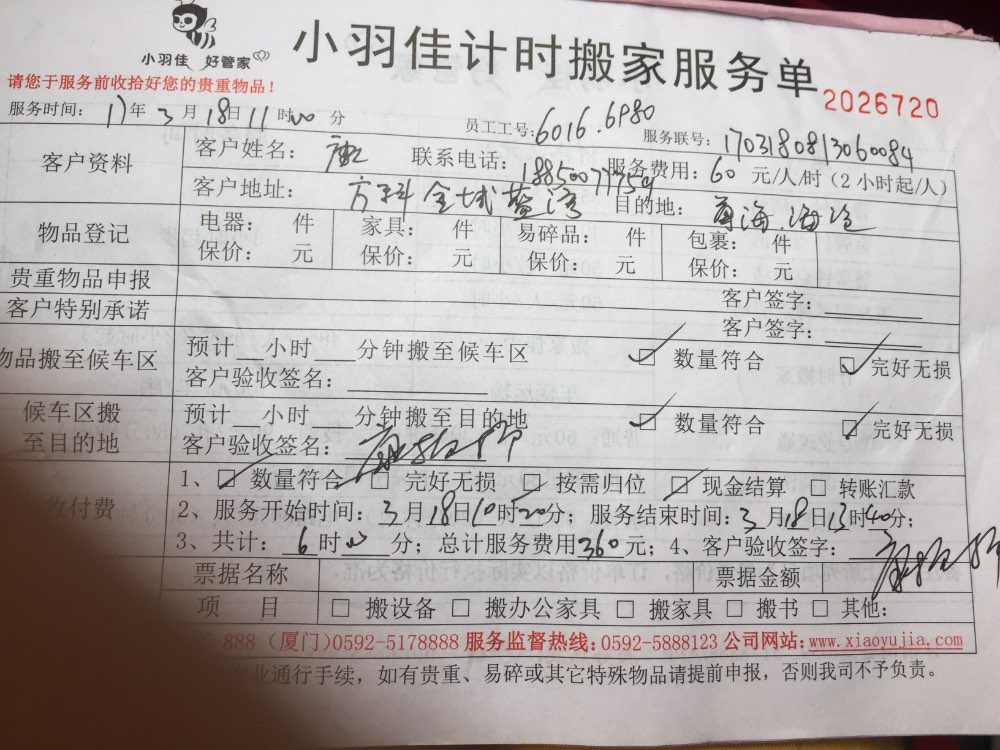 小羽佳 好管家
小羽佳计时搬家服务单
2026720
请您于服务前收拾好您的贵重物品！
服务时间：17年3月18日11时00分 员工工号：6016.6980 服务联号：1703180813060084
客户资料 客户姓名： 联系电话：18850077759 服务费用：60元/人/时（2小时起/人）
客户地址：万科金域蓝湾 目的地：
物品登记 电器： 件 家具： 件 易碎品： 件 包裹： 件
保价： 元 保价： 元 保价： 元 保价： 元
贵重物品申报 客户签字：
客户特别承诺 客户签字：
物品搬至候车区 预计 小时 分钟搬至候车区 ☑ 数量符合 ☑ 完好无损
客户验收签名：
候车区搬至目的地 预计 小时 分钟搬至目的地 ☑ 数量符合 ☑ 完好无损
客户验收签名：
收付费 1、☑ 数量符合 ☑ 完好无损 ☑ 按需归位 ☑ 现金结算 □ 转账汇款
2、服务开始时间：3月18日10时20分；服务结束时间：3月18日13时40分；
3、共计：6时00分；总计服务费用360元；4、客户验收签字：
票据名称 票据金额
项 目 □ 搬设备 □ 搬办公家具 □ 搬家具 □ 搬书 □ 其他：
-888（厦门）0592-5178888 服务监督热线：0592-5888123 公司网站：www.xiaoyujia.com
业通行手续，如有贵重、易碎或其它特殊物品请提前申报，否则我司不予负责。